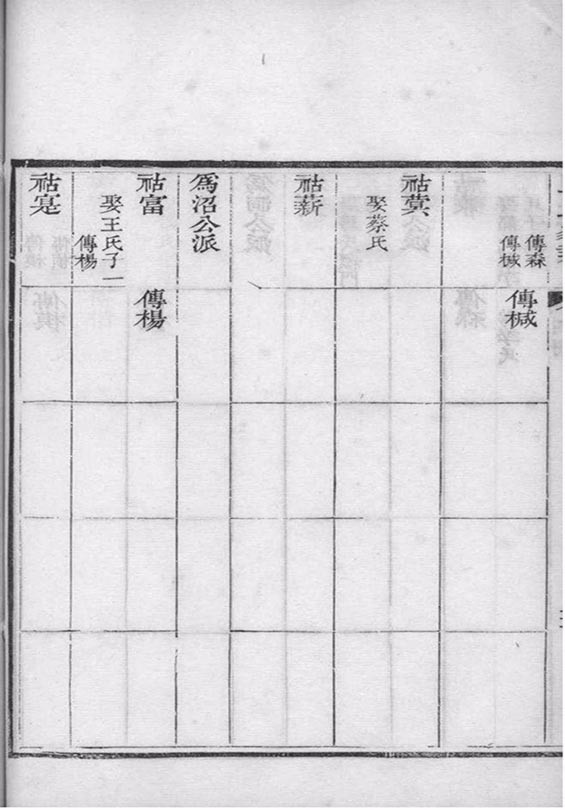 傳森
傳椷
傳椷
祜蓂
娶蔡氏
祜薪
爲沼公派
祜富
娶王氏子一
傳楊
傳楊
祜寔